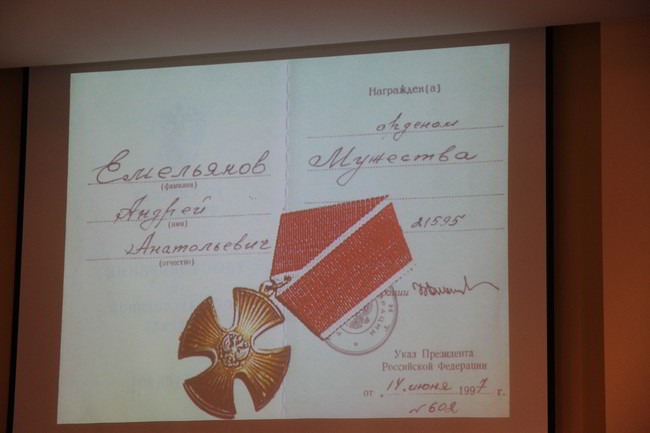 Емельянов
(фамилия)
Андрей
(имя)
Анатольевич
(отчество)
Награжден(а)
орденом
Мужества
21595
Указ Президента
Российской Федерации
от 14 июня 1997 г.
№ 602